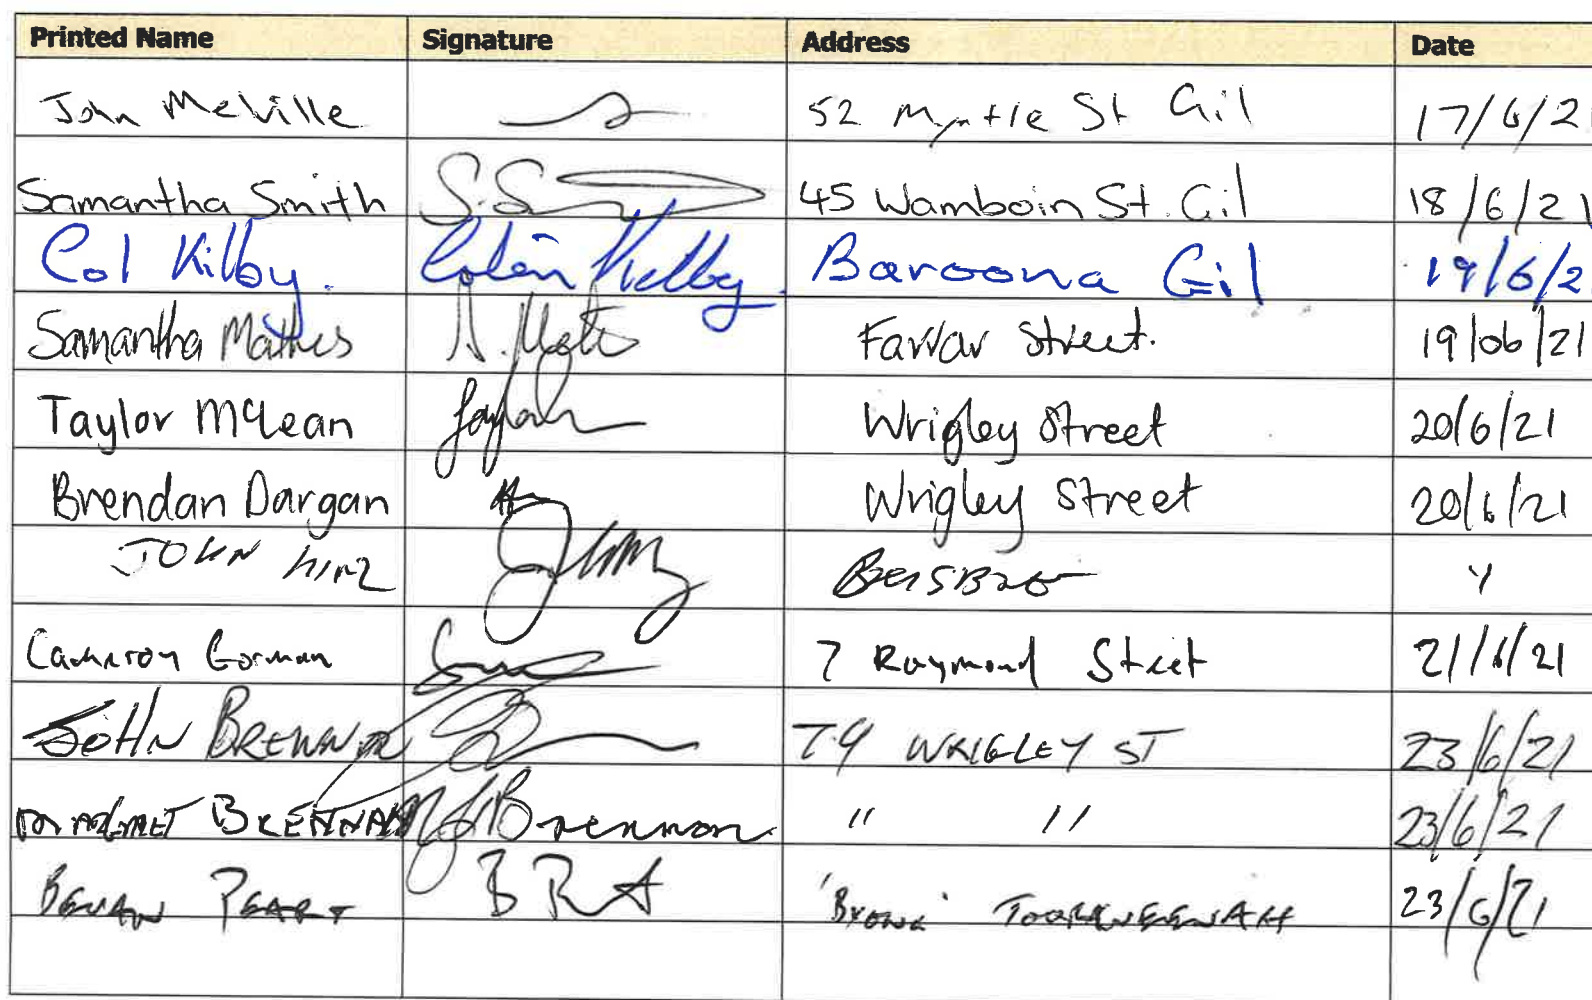 Printed Name Signature Address Date
John Melville 52 Myrtle St Gil 17/6/21
Samantha Smith S.S 45 Wamboin St. Gil 18/6/21
Col Kilby. Colin Kilby. Baroona Gil 19/6/2
Samantha Mathes Farrar Street. 19/06/21
Taylor McLean Wrigley Street 20/6/21
Brendan Dargan Wrigley Street 20/6/21
JOHN "
Cameron Gorman 7 Raymond Street 21/6/21
JOHN BRENNAN 79 WRIGLEY ST 23/6/21
MARGARET BRENNAN Brennan " " 23/6/21
BEVAN PEART TOORAWEENAH 23/6/21